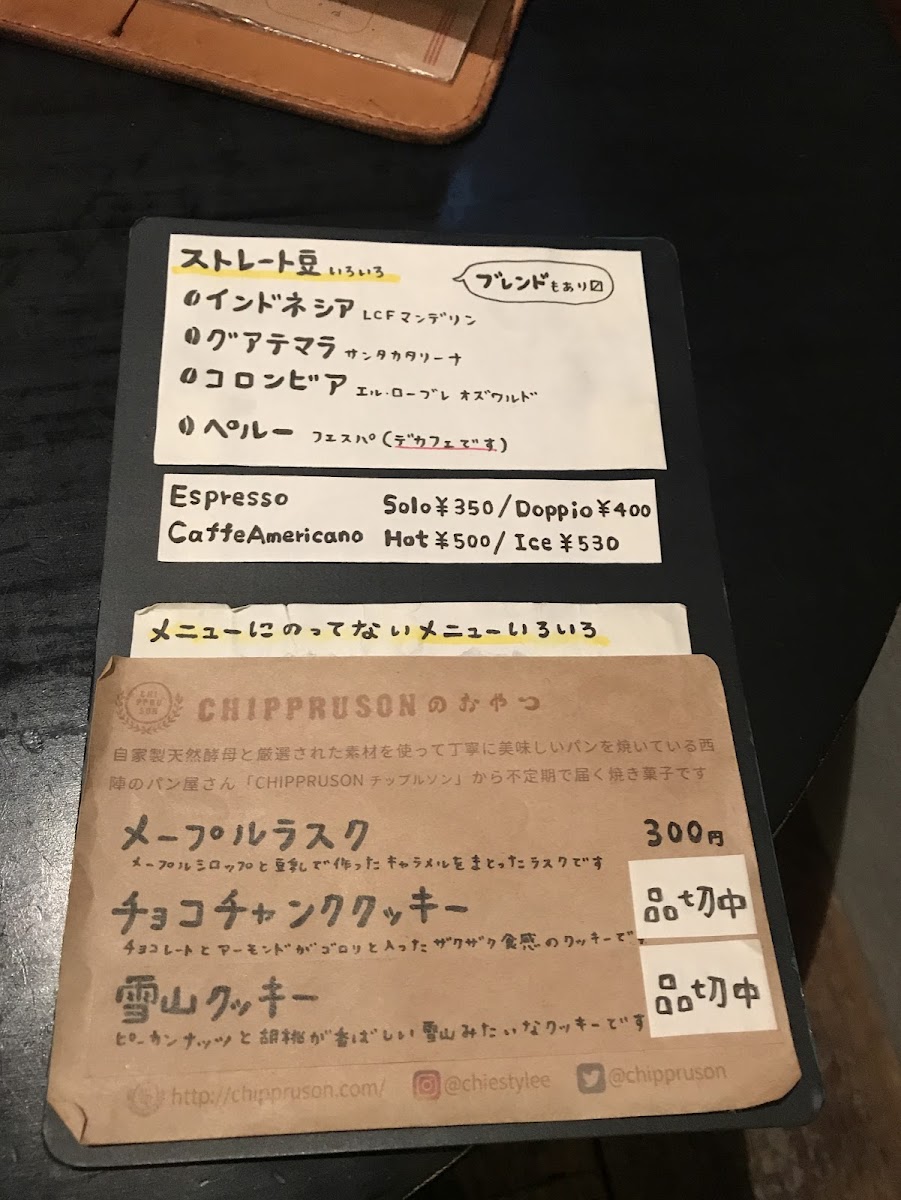 ストレート豆 いろいろ
ブレンドもあり〼
インドネシア LCFマンデリン
グアテマラ サンタカタリーナ
コロンビア エル・ローブレ オズワルド
ペルー フエスパ(デカフェです)
Espresso Solo¥350/Doppio¥400
CaffeAmericano Hot¥500/Ice¥530
メニューにのってないメニューいろいろ
CHIPPRUSONのおやつ
自家製天然酵母と厳選された素材を使って丁寧に美味しいパンを焼いている西
陣のパン屋さん「CHIPPRUSON チップルソン」から不定期で届く焼き菓子です
メープルラスク 300円
メープルシロップと豆乳で作ったキャラメルをまとったラスクです
チョコチャンククッキー 品切中
チョコレートとアーモンドがゴロリと入ったザクザク食感のクッキーで
雪山クッキー 品切中
ピーカンナッツと胡桃が香ばしい雪山みたいなクッキーです
http://chippruson.com/ @chiestylee @chippruson